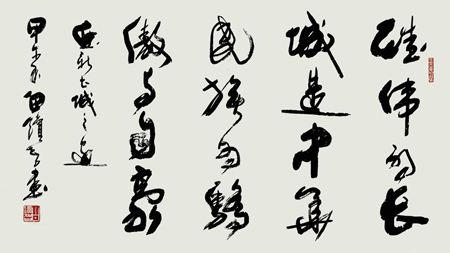 雄伟的长
城是中华
民族的骄
傲与自豪
长城之
甲午 田